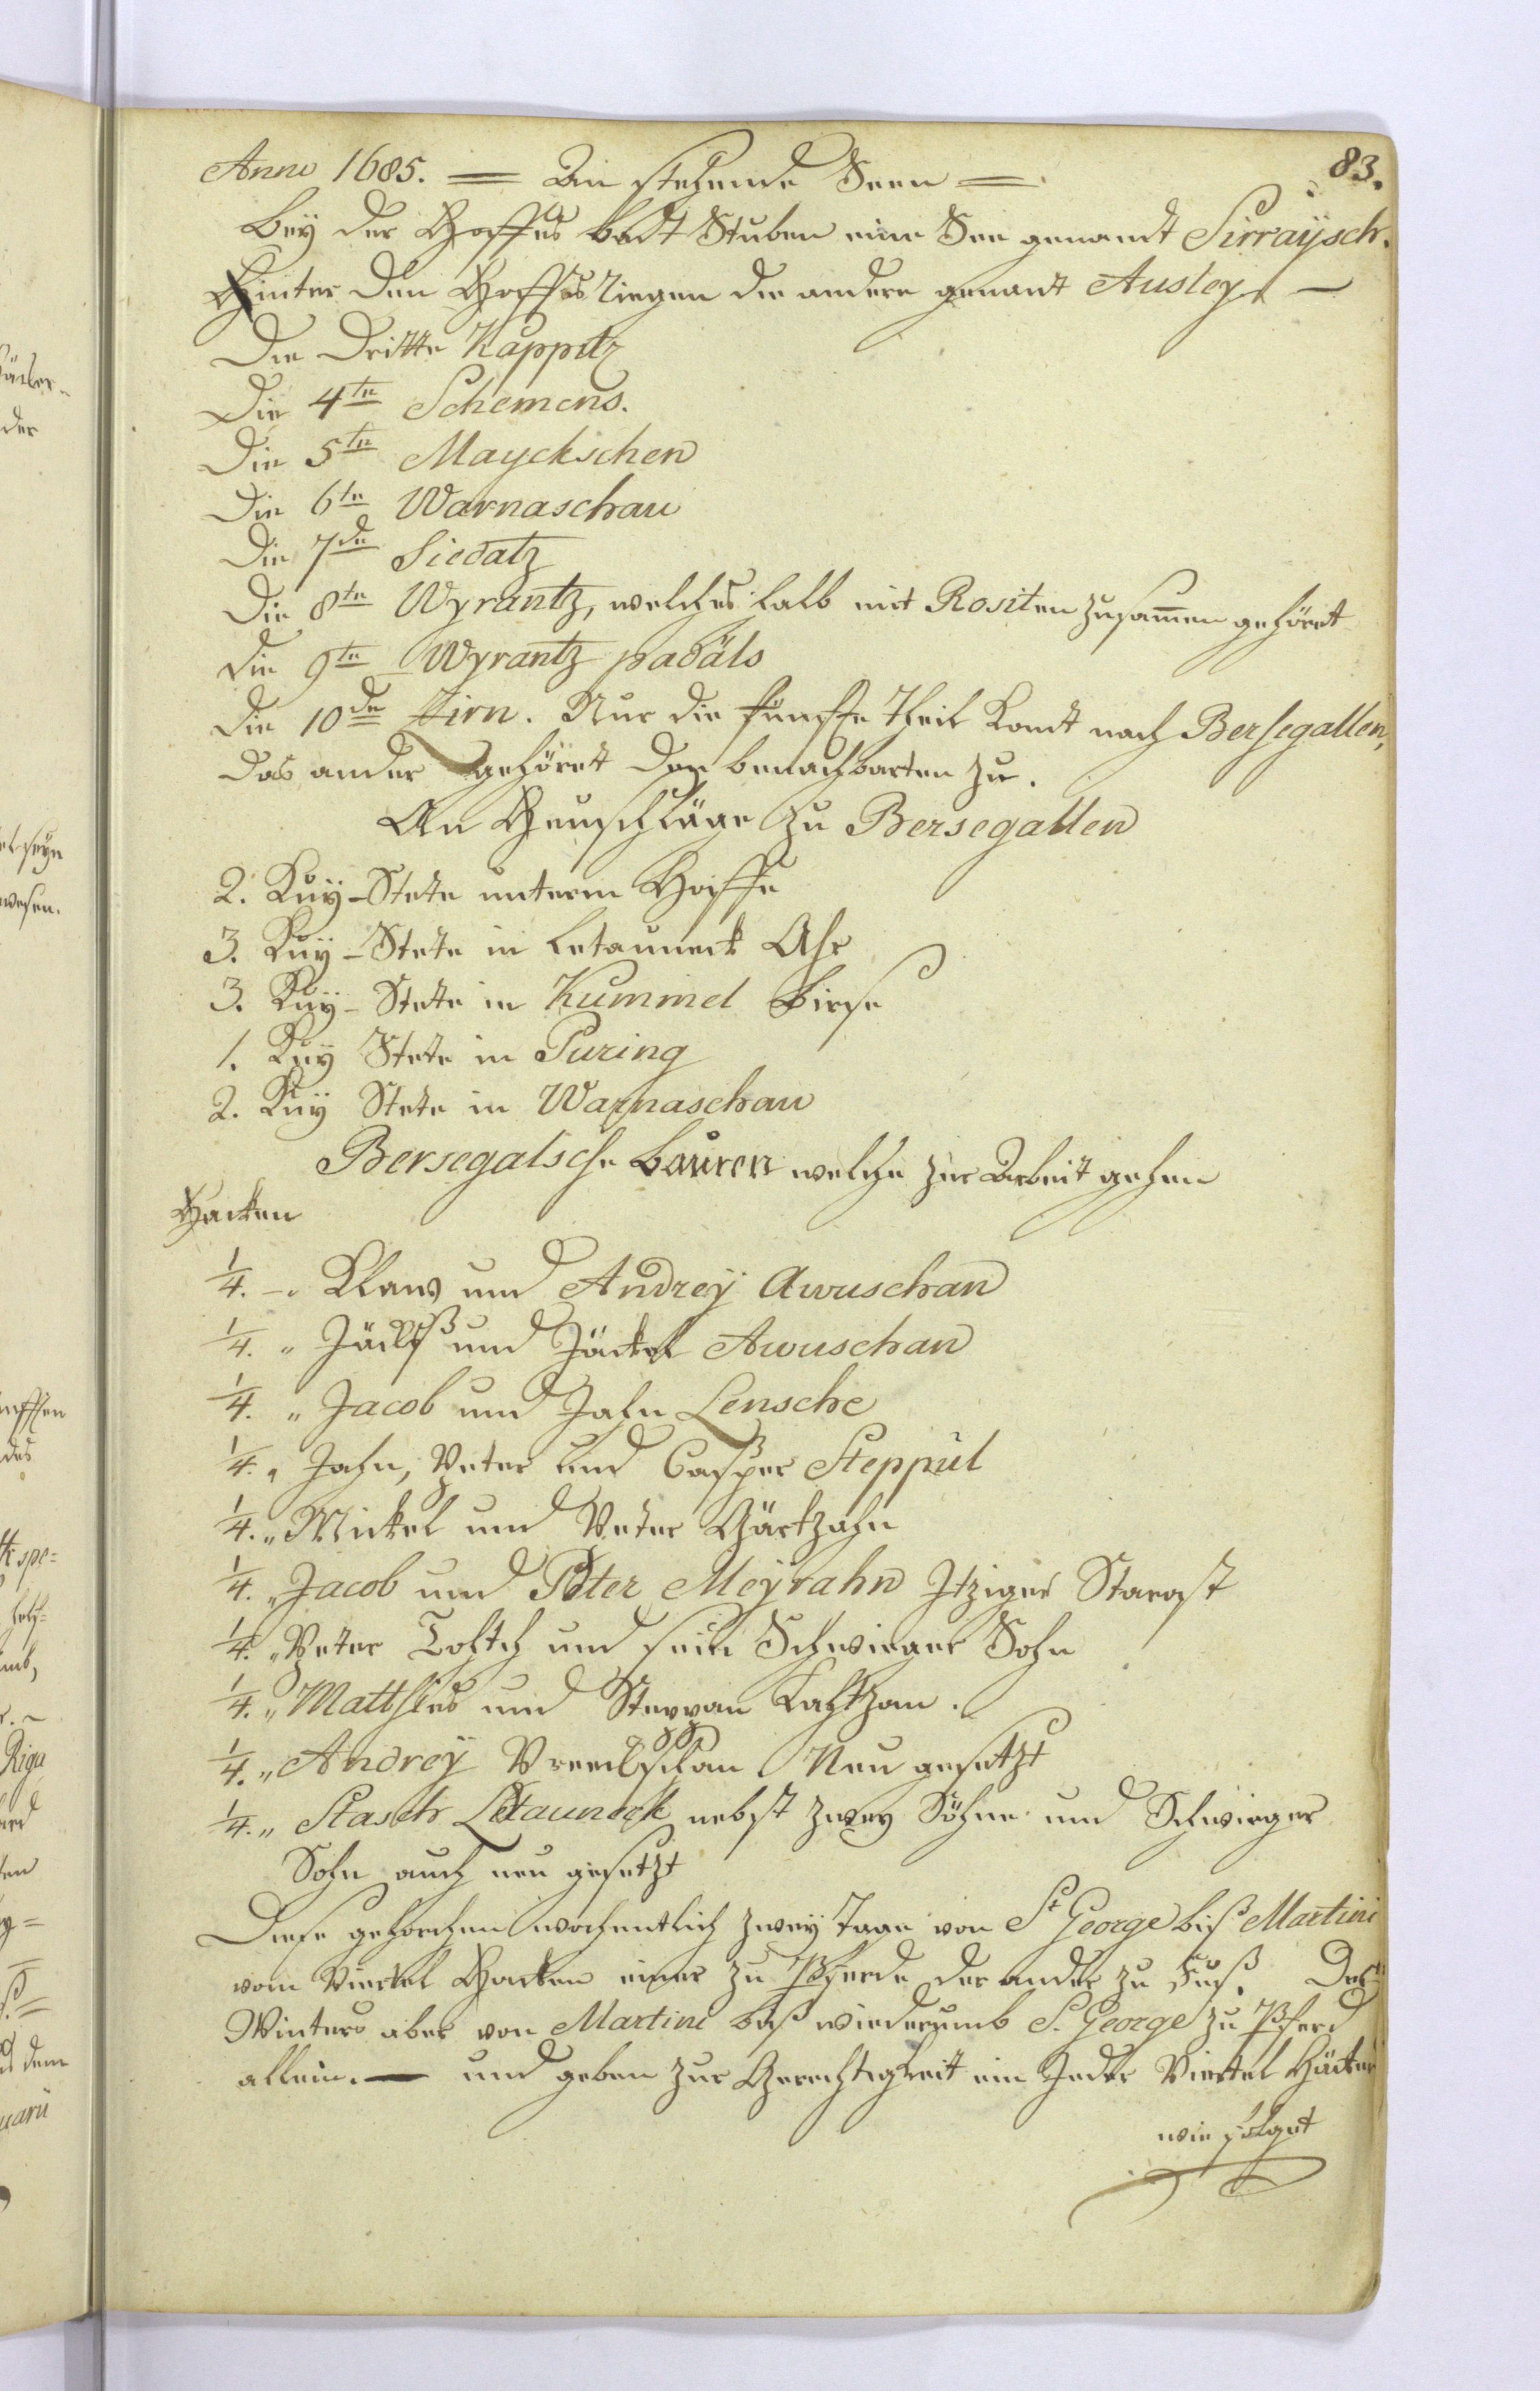 83.
Anno 1685. = An stehende Seen =
Bey der Hoffes badt Stuben eine See genandt Sirraÿsch.
Hinter den Hoffes Riegen die andere genant Ausley. —
Die Dritte Kappitz
Die 4te Schemens.
Die 5te Mayckschen
Die 6te Warnaschau
Die 7de Siedatz
Die 8te Wyrantz, welches halb mit Rositen zusam̄en gehöret
Die 9te Wyrantz padäls
Die 10de Zirn. Nur die fünffte Theil komt nach Bersegallen,
das ander gehöret den benachbarten zu.
An Heuschläge zu Bersegallen
2. Kuÿ-Stete unterm Hoffe
3. Kuÿ-Stete in Letauneck Ahr
3. Kuÿ-Stette in Kummel birse
1. Kuÿ Stete in Puring
2. Kuÿ Stete in Warnaschau
Bersegalsche bauren welche zur Arbeit gehen
Hacken
1/4. -„ Klaws und Andreÿ Awuschan
1/4. „ und Jäckel Awuschan
1/4. „ Jacob und Jahn Lensche
1/4. „ Jahn, Peter und Casper Steppul
1/4. „ Mickel und Peter Gärtzahn
1/4. „ Jacob und Peter Meÿrahn Itziger Starost
1/4. „ Peter und sein Schwieger Sohn
1/4. „ Matthies und Steppan
1/4. „ Andreÿ Neu gesetzt
1/4. „ Stasch Letauneck nebst zweÿ Söhne und Schwieger
Sohn auch neu gesetzt
Diese gehorchen wochentlich zweÿ Tage von St George biß Martini
vom Viertel Hacken einer zu Pferde der ander zu Fuß. Des
Winters aber von Martini biß wiederumb S. George zu Pferd
allein. — und geben zur Gerechtigkeit ein Jeder Viertel Häcker
wie folget